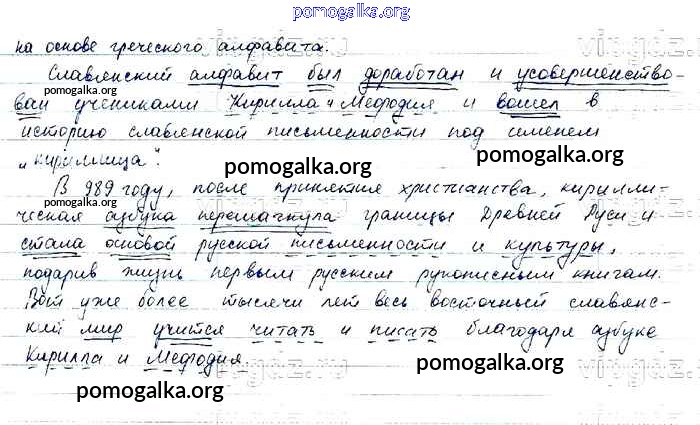 pomogalka.org
на основе греческого алфавита.
Славянский алфавит был доработан и усовершенство-
ван учениками Кирилла и Мефодия и вошел в
историю славянской письменности под именем
„кириллица".
В 989 году, после принятия христианства, кирилли-
ческая азбука перешагнула границы Древней Руси и
стала основой русской письменности и культуры,
подарив жизнь первым русским рукописным книгам.
Вот уже более тысячи лет весь восточный славянс-
кий мир учится читать и писать благодаря азбуке
Кирилла и Мефодия.
pomogalka.org
pomogalka.org
pomogalka.org
pomogalka.org
pomogalka.org
pomogalka.org
pomogalka.org